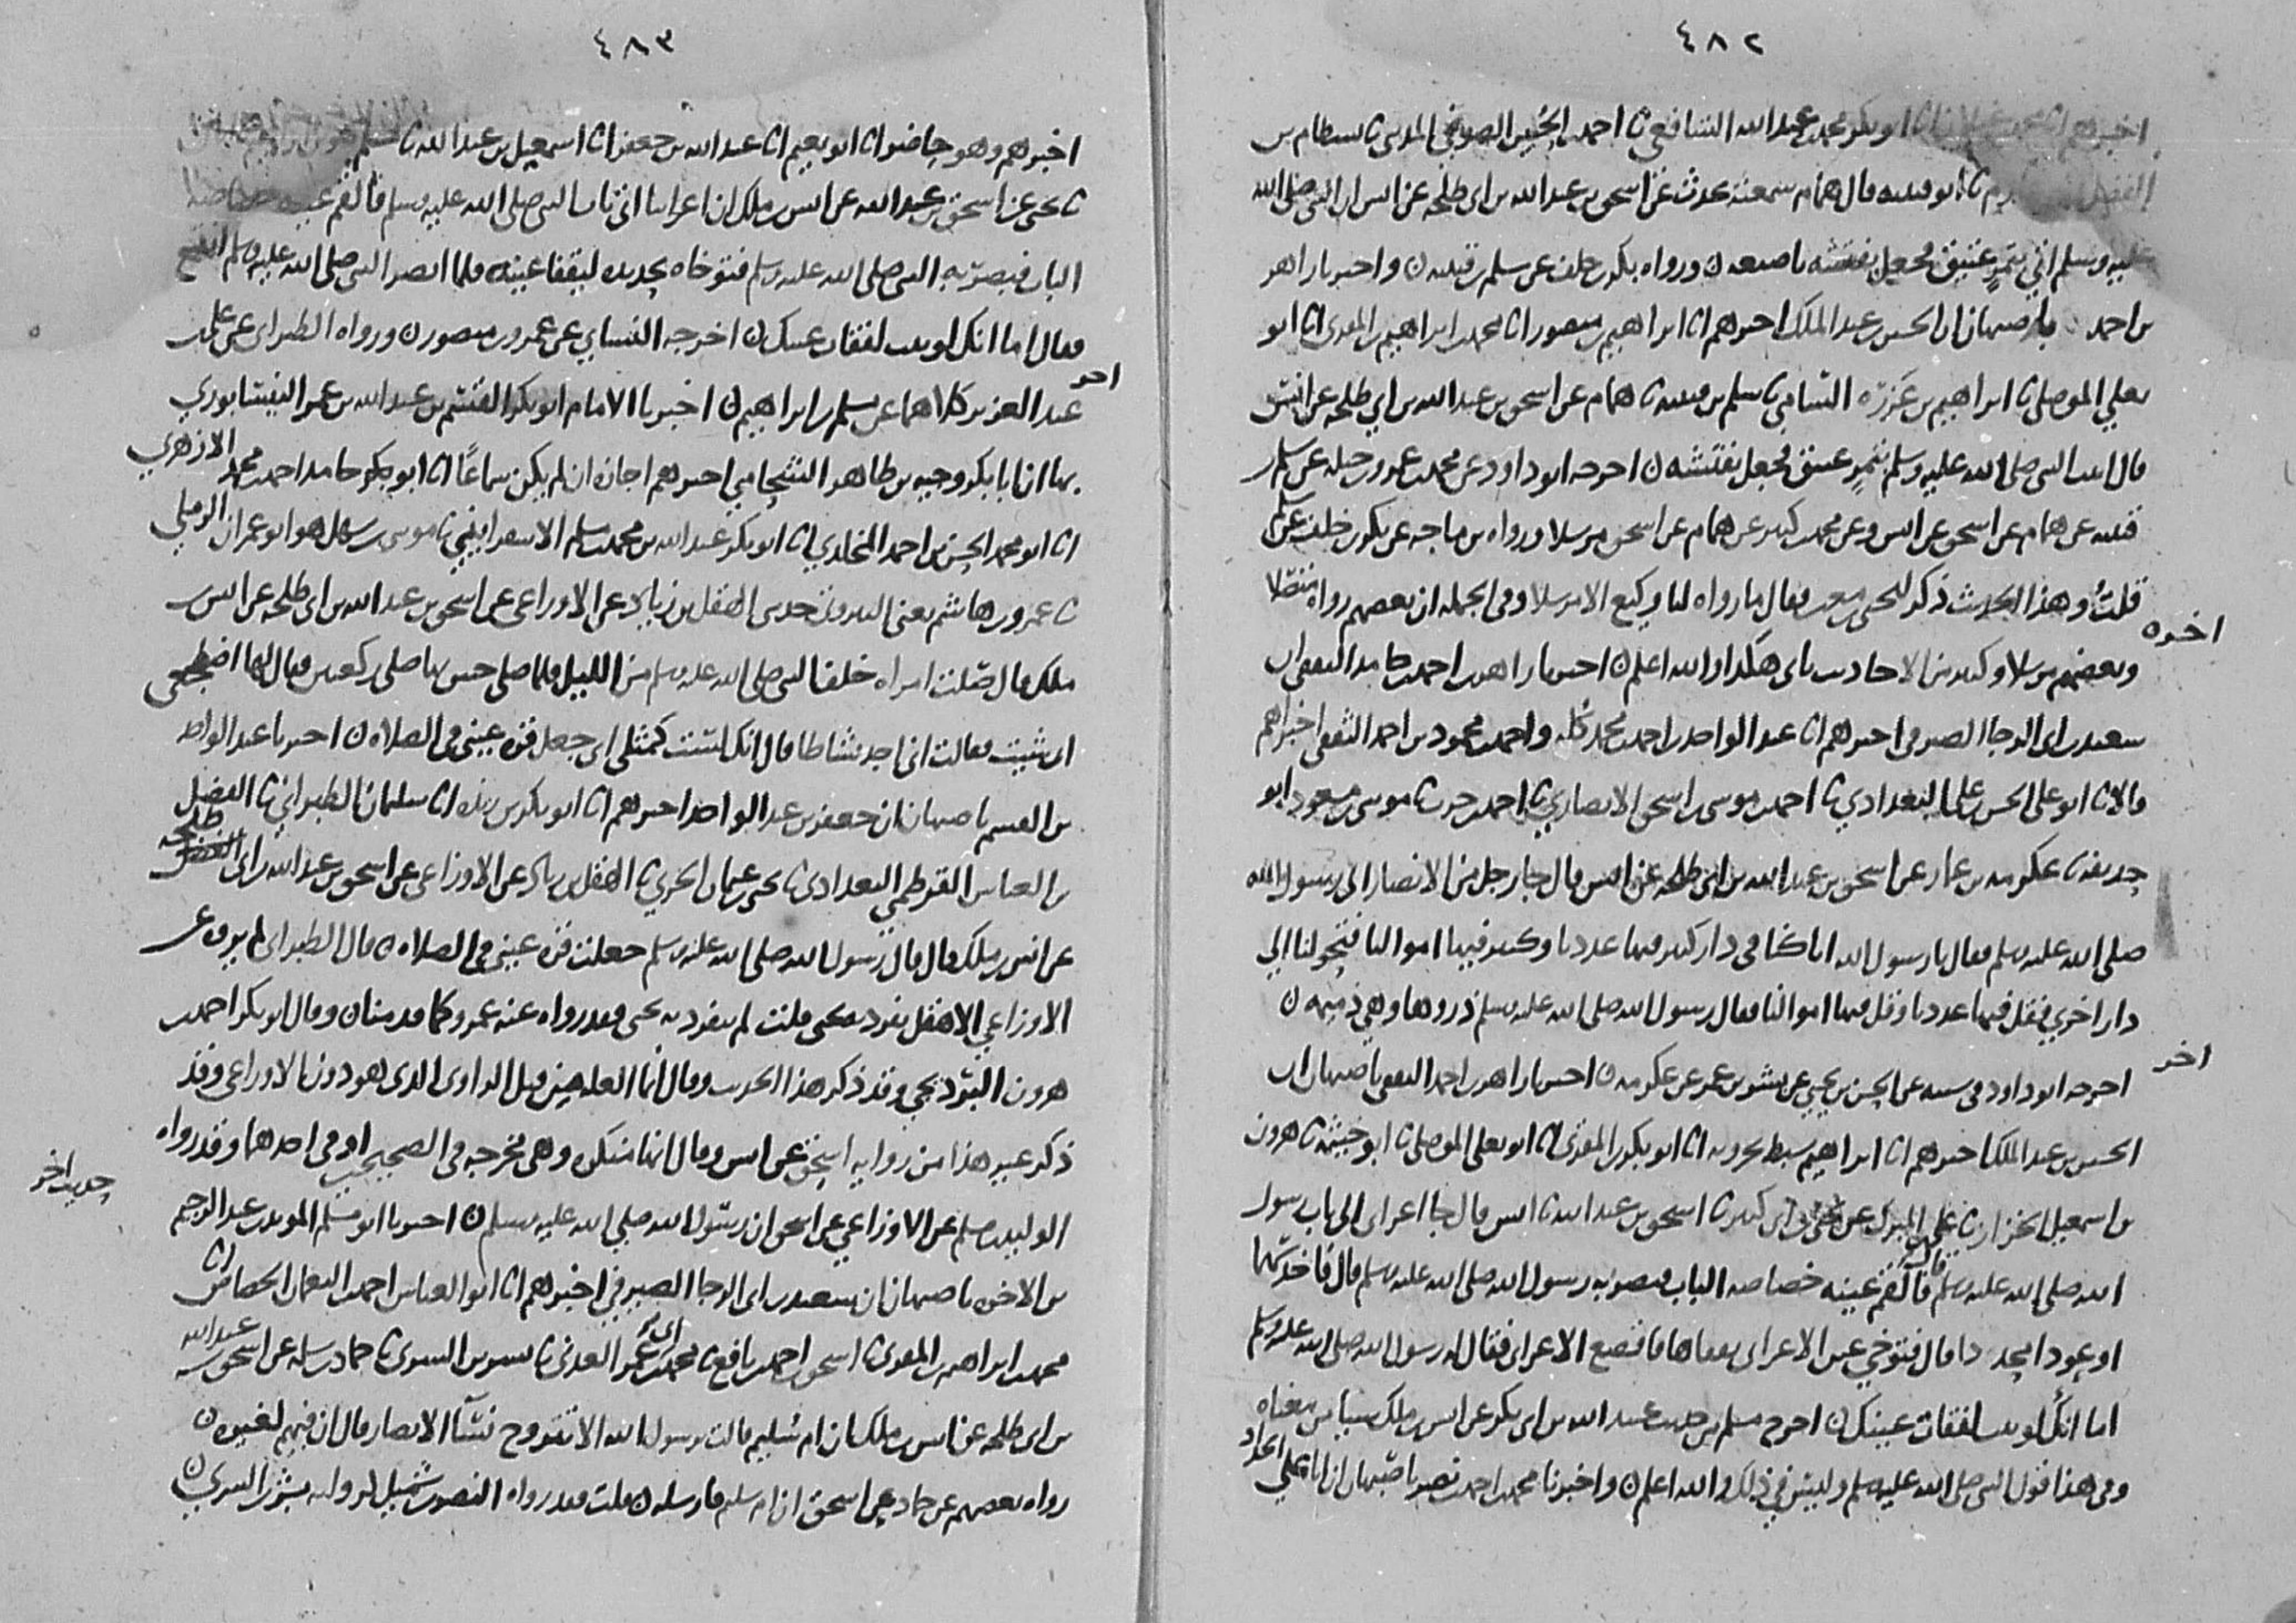 ٤٨٢
اخبرهم ابو بكر محمد بن عبد الله الشافعي ثنا احمد بن الحسين الصوفي ثنا بسطام بن
الفضل ثنا ابو قتيبه قال همام سمعته يحدث عن اسحق بن عبد الله بن ابي طلحه عن انس ان النبي صلى الله
عليه وسلم اتي بتمر عتيق فجعل يفتشه باصبعه ن ورواه بكر بن خلف عن سلم بن قتيبه ن واخبرنا زاهر
بن احمد باصبهان ان الحسين بن عبد الملك اخبرهم ابنا ابراهيم بن منصور ابنا محمد بن ابراهيم بن المقري ابنا ابو
يعلي الموصلي ثنا ابراهيم بن عرعره الشامي ثنا سلم بن قتيبه ثنا همام عن اسحق بن عبد الله بن ابي طلحه عن انس
قال اتي النبي صلى الله عليه وسلم بتمر عتيق فجعل يفتشه ن اخرجه ابو داود عن محمد بن عمرو بن جبله عن سلم بن
قتيبه عن همام عن اسحق عن انس وعن محمد بن كثير عن همام عن اسحق مرسلا ورواه بن ماجه عن بكر بن خلف عن سلم
قلت وهذا الحديث ذكر ليحيى بن معين فقال ما رواه لنا وكيع الا مرسلا وفي الجمله ان بعضهم رواه متصلا
وبعضهم مرسلا وكثير من الاحاديث ياتي هكذا والله اعلم ن اخبرنا زاهر بن احمد بن حامد الثقفي ان
اخر
سعيد بن ابي الرجا الصيرفي اخبرهم ابنا عبد الواحد بن احمد بن محمد بقله واحمد بن محمود بن احمد الثقفي اخبراهم
قالا ابنا ابو علي الحسن بن علي البغدادي ثنا احمد بن موسى بن اسحق الانصاري ثنا احمد بن حرب ثنا موسى بن مسعود ابو
حذيفه ثنا عكرمه بن عمار عن اسحق بن عبد الله بن ابي طلحه عن انس قال جا رجل من الانصار الى رسول الله
صلى الله عليه وسلم فقال يا رسول الله انا كنا في دار كثير فيها عددنا وكثير فيها اموالنا فتحولنا الي
دار اخرى فقل فيها عددنا وقل فيها اموالنا فقال رسول الله صلى الله عليه وسلم ذروها وهي ذميمه ن
اخرجه ابو داود في سننه عن الحسن بن يحيى عن بشر بن عمر عن عكرمه ن اخبرنا زاهر بن احمد الثقفي باصبهان ان
اخر
الحسين بن عبد الملك اخبرهم ابنا ابراهيم سبط بحرويه ابنا ابو بكر بن المقري ابنا ابو يعلى الموصلي ثنا ابو خيثمه ثنا هرون
بن اسمعيل الخزاز ثنا علي بن المبرك عن يحيى بن ابي كثير ثنا اسحق بن عبد الله ثنا انس قال جا اعرابي الى باب رسول
الله صلى الله عليه وسلم قال فالقم عينه خصاصه الباب فبصر به رسول الله صلى الله عليه وسلم قال فاخذ سهما
او عودا محددا قال فتوخي عين الاعرابي يفقاها فانقمع الاعرابي فقال له رسول الله صلى الله عليه وسلم
اما انك لو ثبت لفقات عينك ن اخرج مسلم من حديث عبيد الله بن ابي بكر عن انس بن ملك شيا من معناه
وفي هذا قول النبي صلى الله عليه وسلم وليس في ذلك والله اعلم ن واخبرنا محمد بن احمد بن نصر باصبهان ان ابا علي الحداد
٤٨٣
اخبرهم وهو حاضر ابنا ابو نعيم ابنا عبد الله بن جعفر ابنا اسمعيل بن عبد الله ثنا مسلم بن ابراهيم ثنا ابان
ثنا يحيى عن اسحق بن عبد الله عن انس بن ملك ان اعرابيا اتى باب النبي صلى الله عليه وسلم فالقم عينه خصاصه
الباب فبصر به النبي صلى الله عليه وسلم فتوخاه بحديده ليفقا عينه فلما ابصر النبي صلى الله عليه وسلم انقمع
فقال اما انك لو ثبت لفقات عينك ن اخرجه النسائي عن عمرو بن منصور ن ورواه الطبراني عن علي بن
عبد العزيز كلاهما عن مسلم بن ابراهيم ن اخبرنا الامام ابو بكر القسم بن عبد الله بن عمر النيسابوري
اخر
بها ان ابا بكر وجيه بن طاهر الشحامي اخبرهم اجازه ان لم يكن سماعا ابنا ابو بكر حامد احمد بن محمد الازهري
ابنا ابو محمد الحسن بن احمد المخلدي ابنا ابو بكر عبد الله بن محمد بن مسلم الاسفرايني ثنا موسى بن سهل هو ابو عمران الرملي
ثنا عمرو بن هاشم يعني البيروتي حدثني الهقل بن زياد عن الاوزاعي عن اسحق بن عبد الله بن ابي طلحه عن انس بن
ملك قال صلت امراه خلف النبي صلى الله عليه وسلم من الليل فلما صلى حس بها صلى ركعتين فقال لها اضطجعي
ان شيت فقالت اني اجد نشاطا قال انك لست كمثلي اني جعل قره عيني في الصلاه ن اخبرنا عبد الواحد
بن القسم باصبهان ان جعفر بن عبد الواحد اخبرهم ابنا ابو بكر بن ريذه ابنا سليمان الطبراني ثنا الفضل
بن العباس القرطمي البغدادي ثنا يحيى بن عثمان الحربي ثنا الهقل بن زياد عن الاوزاعي عن اسحق بن عبد الله بن ابي طلحه
عن انس بن ملك قال قال رسول الله صلى الله عليه وسلم جعلت قره عيني في الصلاه ن قال الطبراني لم يروه عن
الاوزاعي الا هقل تفرد به يحيى قلت لم يتفرد به يحيى فقد رواه عنه عمرو كما قدمناه ن وقال ابو بكر احمد بن
هرون البرديجي وقد ذكر هذا الحديث وقال انما العله من قبل الراوي الذي هو دون الاوزاعي وقد
ذكر غير هذا من روايه اسحق عن انس وقال انها منكره وهي مخرجه في الصحيحين او في احدهما وقد رواه
الوليد بن مسلم عن الاوزاعي عن اسحق ان رسول الله صلى الله عليه وسلم ن اخبرنا ابو مسلم المويد بن عبد الرحيم
حديث اخر
بن الاخوه باصبهان ان سعيد بن ابي الرجا الصيرفي اخبرهم ابنا ابو العباس احمد بن النعمان الجصاص ابنا
محمد بن ابراهيم بن المقري ثنا اسحق بن احمد بن نافع ثنا محمد بن ابي عمر العدني ثنا بشر بن السري ثنا حماد بن سلمه عن اسحق بن عبد الله
بن ابي طلحه عن انس بن ملك ان ام سليم قالت يرسول الله الا تتزوج نسآ الانصار قال ان فيهم لغيره ن
رواه بعضهم عن حماد عن اسحق ان ام سليم فارسله ن قلت وقد رواه النضر بن شميل كروايه بشر بن السري ن